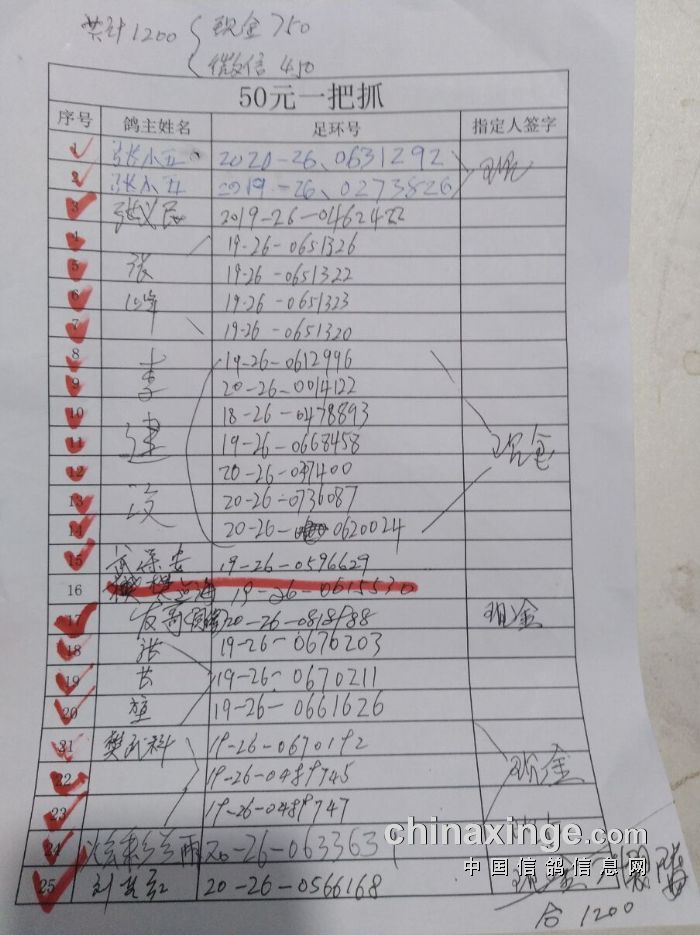 共计1200 现金750
微信450
50元一把抓
序号 鸽主姓名 足环号 指定人签字
1 张小五 2020-26-0631292
2 张小五 2019-26-0273826 现金
3 张义民 2019-26-0462422
4 19-26-0651326
5 张 19-26-0651322
6 峰 19-26-0651323
7 19-26-0651320
8 李 19-26-0612996
9 20-26-0014122
10 18-26-0478893
11 建 19-26-0668458 现金
12 20-26-037400
13 20-26-0736087
14 20-26-0620024
15 武保安 19-26-0596629
16 19-26-0615530
17 友哥 20-26-0818988 现金
18 张 19-26-0670203
19 19-26-0670211
20 19-26-0661626
21 樊武科 19-26-0670192
22 19-26-0489745 现金
23 19-26-0489747
24 20-26-063363
25 20-26-0566168 现金
chinaxinge.com
中国信鸽信息网
合1200